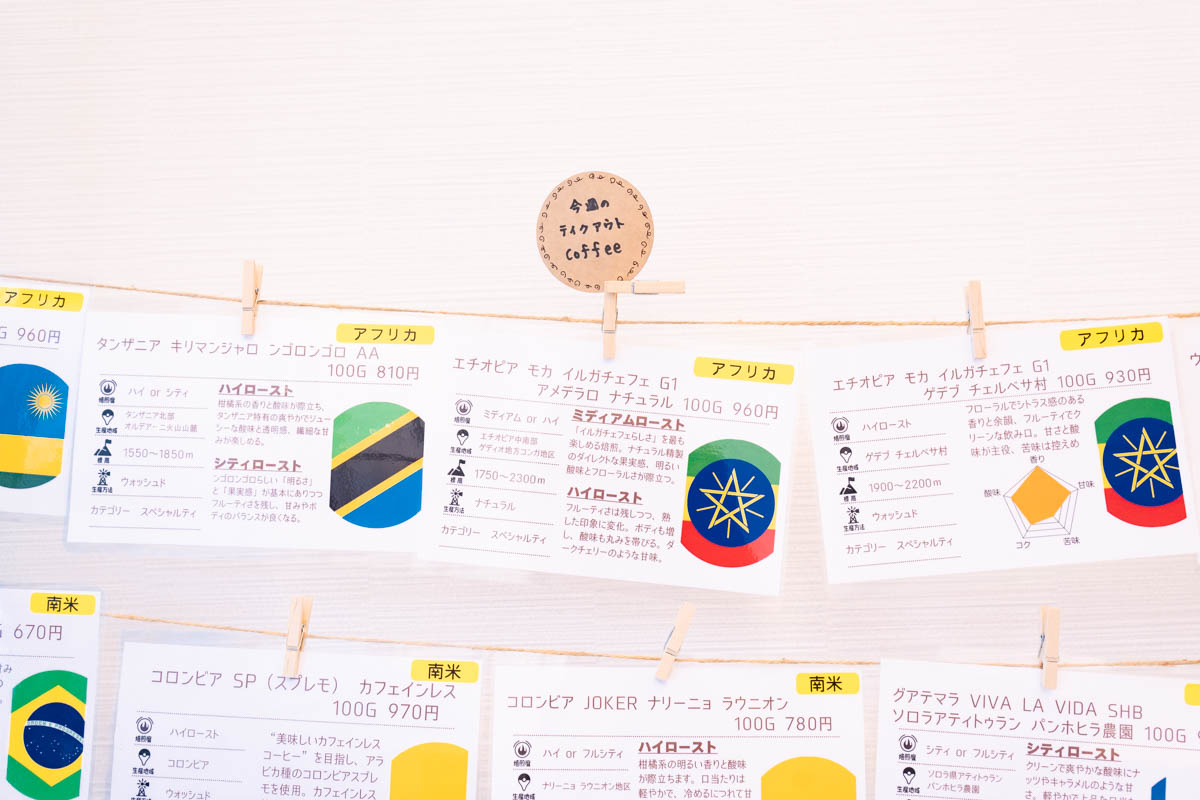 今週の
テイクアウト
coffee
アフリカ
960円
アフリカ
タンザニア キリマンジャロ ンゴロンゴロ AA
100G 810円
焙煎度
ハイ or シティ
生産地域
タンザニア北部
オルデアーニ火山山麓
標高
1550〜1850m
生産方法
ウォッシュド
カテゴリー スペシャルティ
ハイロースト
柑橘系の香りと酸味が際立ち、
タンザニア特有の爽やかでジュー
シーな酸味と透明感、繊細な甘
みが楽しめる。
シティロースト
ンゴロンゴロらしい「明るさ」
と「果実感」が基本にありつつ
フルーティさを残し、甘みやボ
ディのバランスが良くなる。
アフリカ
エチオピア モカ イルガチェフェ G1
アメデラロ ナチュラル 100G 960円
焙煎度
ミディアム or ハイ
生産地域
エチオピア中南部
ゲディオ地方コンガ地区
標高
1750〜2300m
生産方法
ナチュラル
カテゴリー スペシャルティ
ミディアムロースト
「イルガチェフェらしさ」を最も
楽しめる焙煎。ナチュラル精製
のダイレクトな果実感、明るい
酸味とフローラルさが際立つ。
ハイロースト
フルティさは残しつつ、熟
した印象に変化。ボディも増
し、酸味も丸みを帯びる。ダ
ークチェリーのような甘味。
アフリカ
エチオピア モカ イルガチェフェ G1
ゲデブ チェルベサ村 100G 930円
焙煎度
ハイロースト
生産地域
ゲデブ チェルベサ村
標高
1900〜2200m
生産方法
ウォッシュド
カテゴリー スペシャルティ
フローラルでシトラス感のある
香りと余韻、フルーティでク
リーンな飲み口。甘さと酸
味が主役、苦味は控えめ
香り
酸味
甘味
コク
苦味
南米
670円
南米
コロンビア SP（スプレモ） カフェインレス
100G 970円
焙煎度
ハイロースト
生産地域
コロンビア
ウォッシュド
“美味しいカフェインレス
コーヒー”を目指し、アラ
ビカ種のコロンビアスプレ
モを使用。カフェインレス
南米
コロンビア JOKER ナリーニョ ラウニオン
100G 780円
焙煎度
ハイ or フルシティ
生産地域
ナリーニョ ラウニオン地区
ハイロースト
柑橘系の明るい香りと酸味
が際立ちます。口当たりは
軽やかで、冷めるにつれて甘
グアテマラ VIVA LA VIDA SHB
ソロラアティトゥラン パンホヒラ農園 100G
焙煎度
シティ or フルシティ
生産地域
ソロラ県アティトゥラン
パンホヒラ農園
シティロースト
クリーンで爽やかな酸味にナ
ッツやキャラメルのような甘
さ。